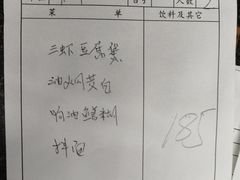 菜 单 饮料及其它
三虾豆腐煲
油焖茭白
响油鳝糊
拌面
185